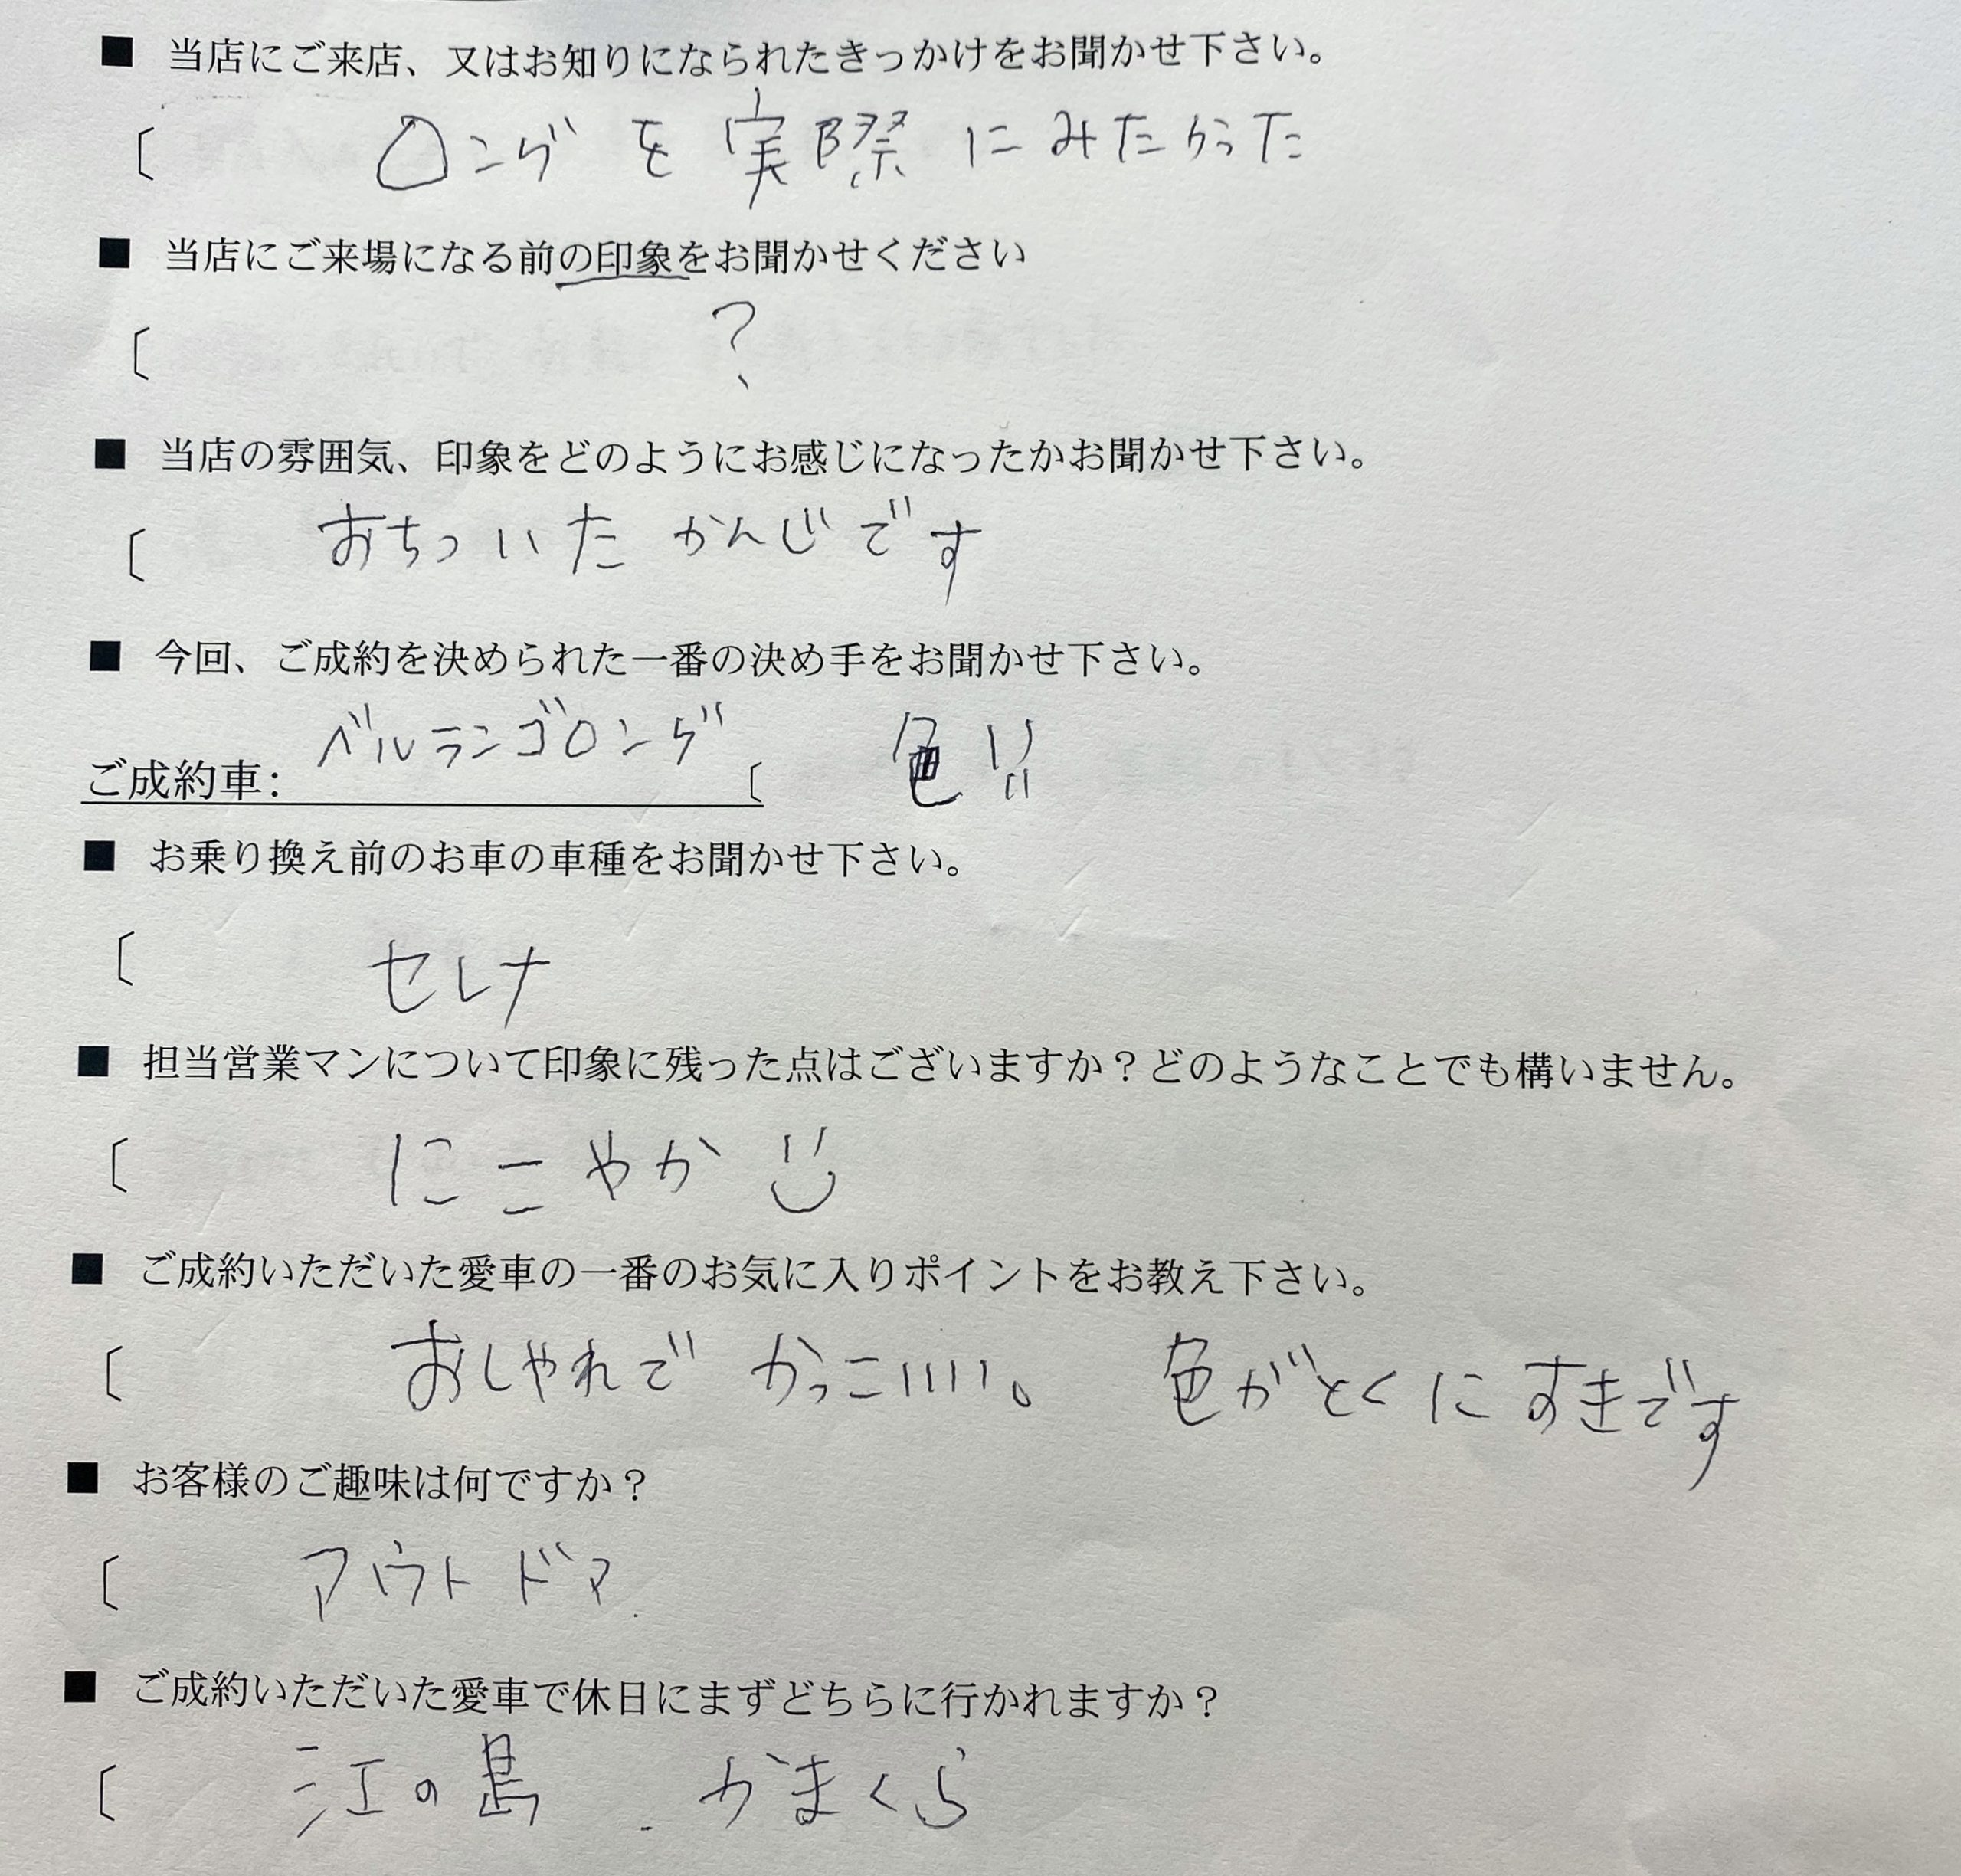 ■ 当店にご来店、又はお知りになられたきっかけをお聞かせ下さい。
〔 ロングを実際にみたかった
■ 当店にご来場になる前の印象をお聞かせください
〔 ?
■ 当店の雰囲気、印象をどのようにお感じになったかお聞かせ下さい。
〔 おちついたかんじです
■ 今回、ご成約を決められた一番の決め手をお聞かせ下さい。
ご成約車: ベルランゴロング 〔 色!!
■ お乗り換え前のお車の車種をお聞かせ下さい。
〔 セレナ
■ 担当営業マンについて印象に残った点はございますか？どのようなことでも構いません。
〔 にこやか
■ ご成約いただいた愛車の一番のお気に入りポイントをお教え下さい。
〔 おしゃれでかっこいい。 色がとくにすきです
■ お客様のご趣味は何ですか？
〔 アウトドア.
■ ご成約いただいた愛車で休日にまずどちらに行かれますか？
〔 江の島 . かまくら